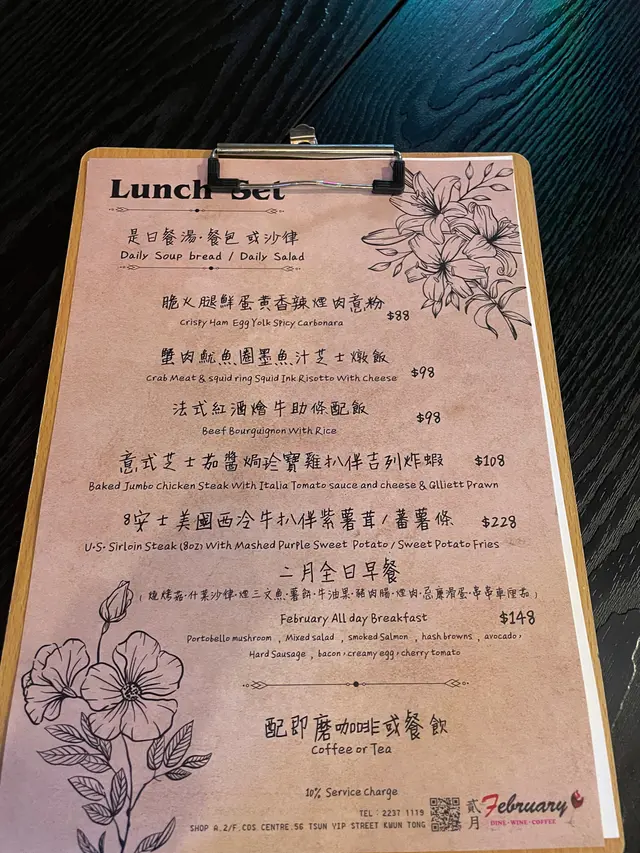 Lunch Set
是日餐湯·餐包 或沙律
Daily Soup bread / Daily Salad
脆火腿鮮蛋黃香辣煙肉意粉 $88
Crispy Ham Egg Yolk Spicy Carbonara
蟹肉魷魚圈墨魚汁芝士燉飯 $98
Crab Meat & squid ring Squid Ink Risotto With Cheese
法式紅酒燴牛助條配飯 $98
Beef Bourguignon With Rice
意式芝士茄醬焗珍寶雞扒伴吉列炸蝦 $108
Baked Jumbo Chicken Steak With Italia Tomato sauce and cheese & Qlliett Prawn
8安士美國西冷牛扒伴紫薯茸/蕃薯條 $228
U.S. Sirloin Steak (8oz) With Mashed Purple Sweet Potato / Sweet Potato Fries
二月全日早餐
(燒烤菇·什菜沙律·煙三文魚·薯餅·牛油果·豬肉腸·煙肉·忌廉滑蛋·串串車厘茄)
February All day Breakfast $148
Portobello mushroom , Mixed salad , smoked Salmon , hash browns , avocado,
Hard Sausage , bacon, creamy egg, cherry tomato
配即磨咖啡或餐飲
Coffee or Tea
10% Service Charge
TEL : 2237 1119
SHOP A.2/F.CDS CENTRE.56 TSUN YIP STREET KWUN TONG
貳月 February
DINE·WINE·COFFEE